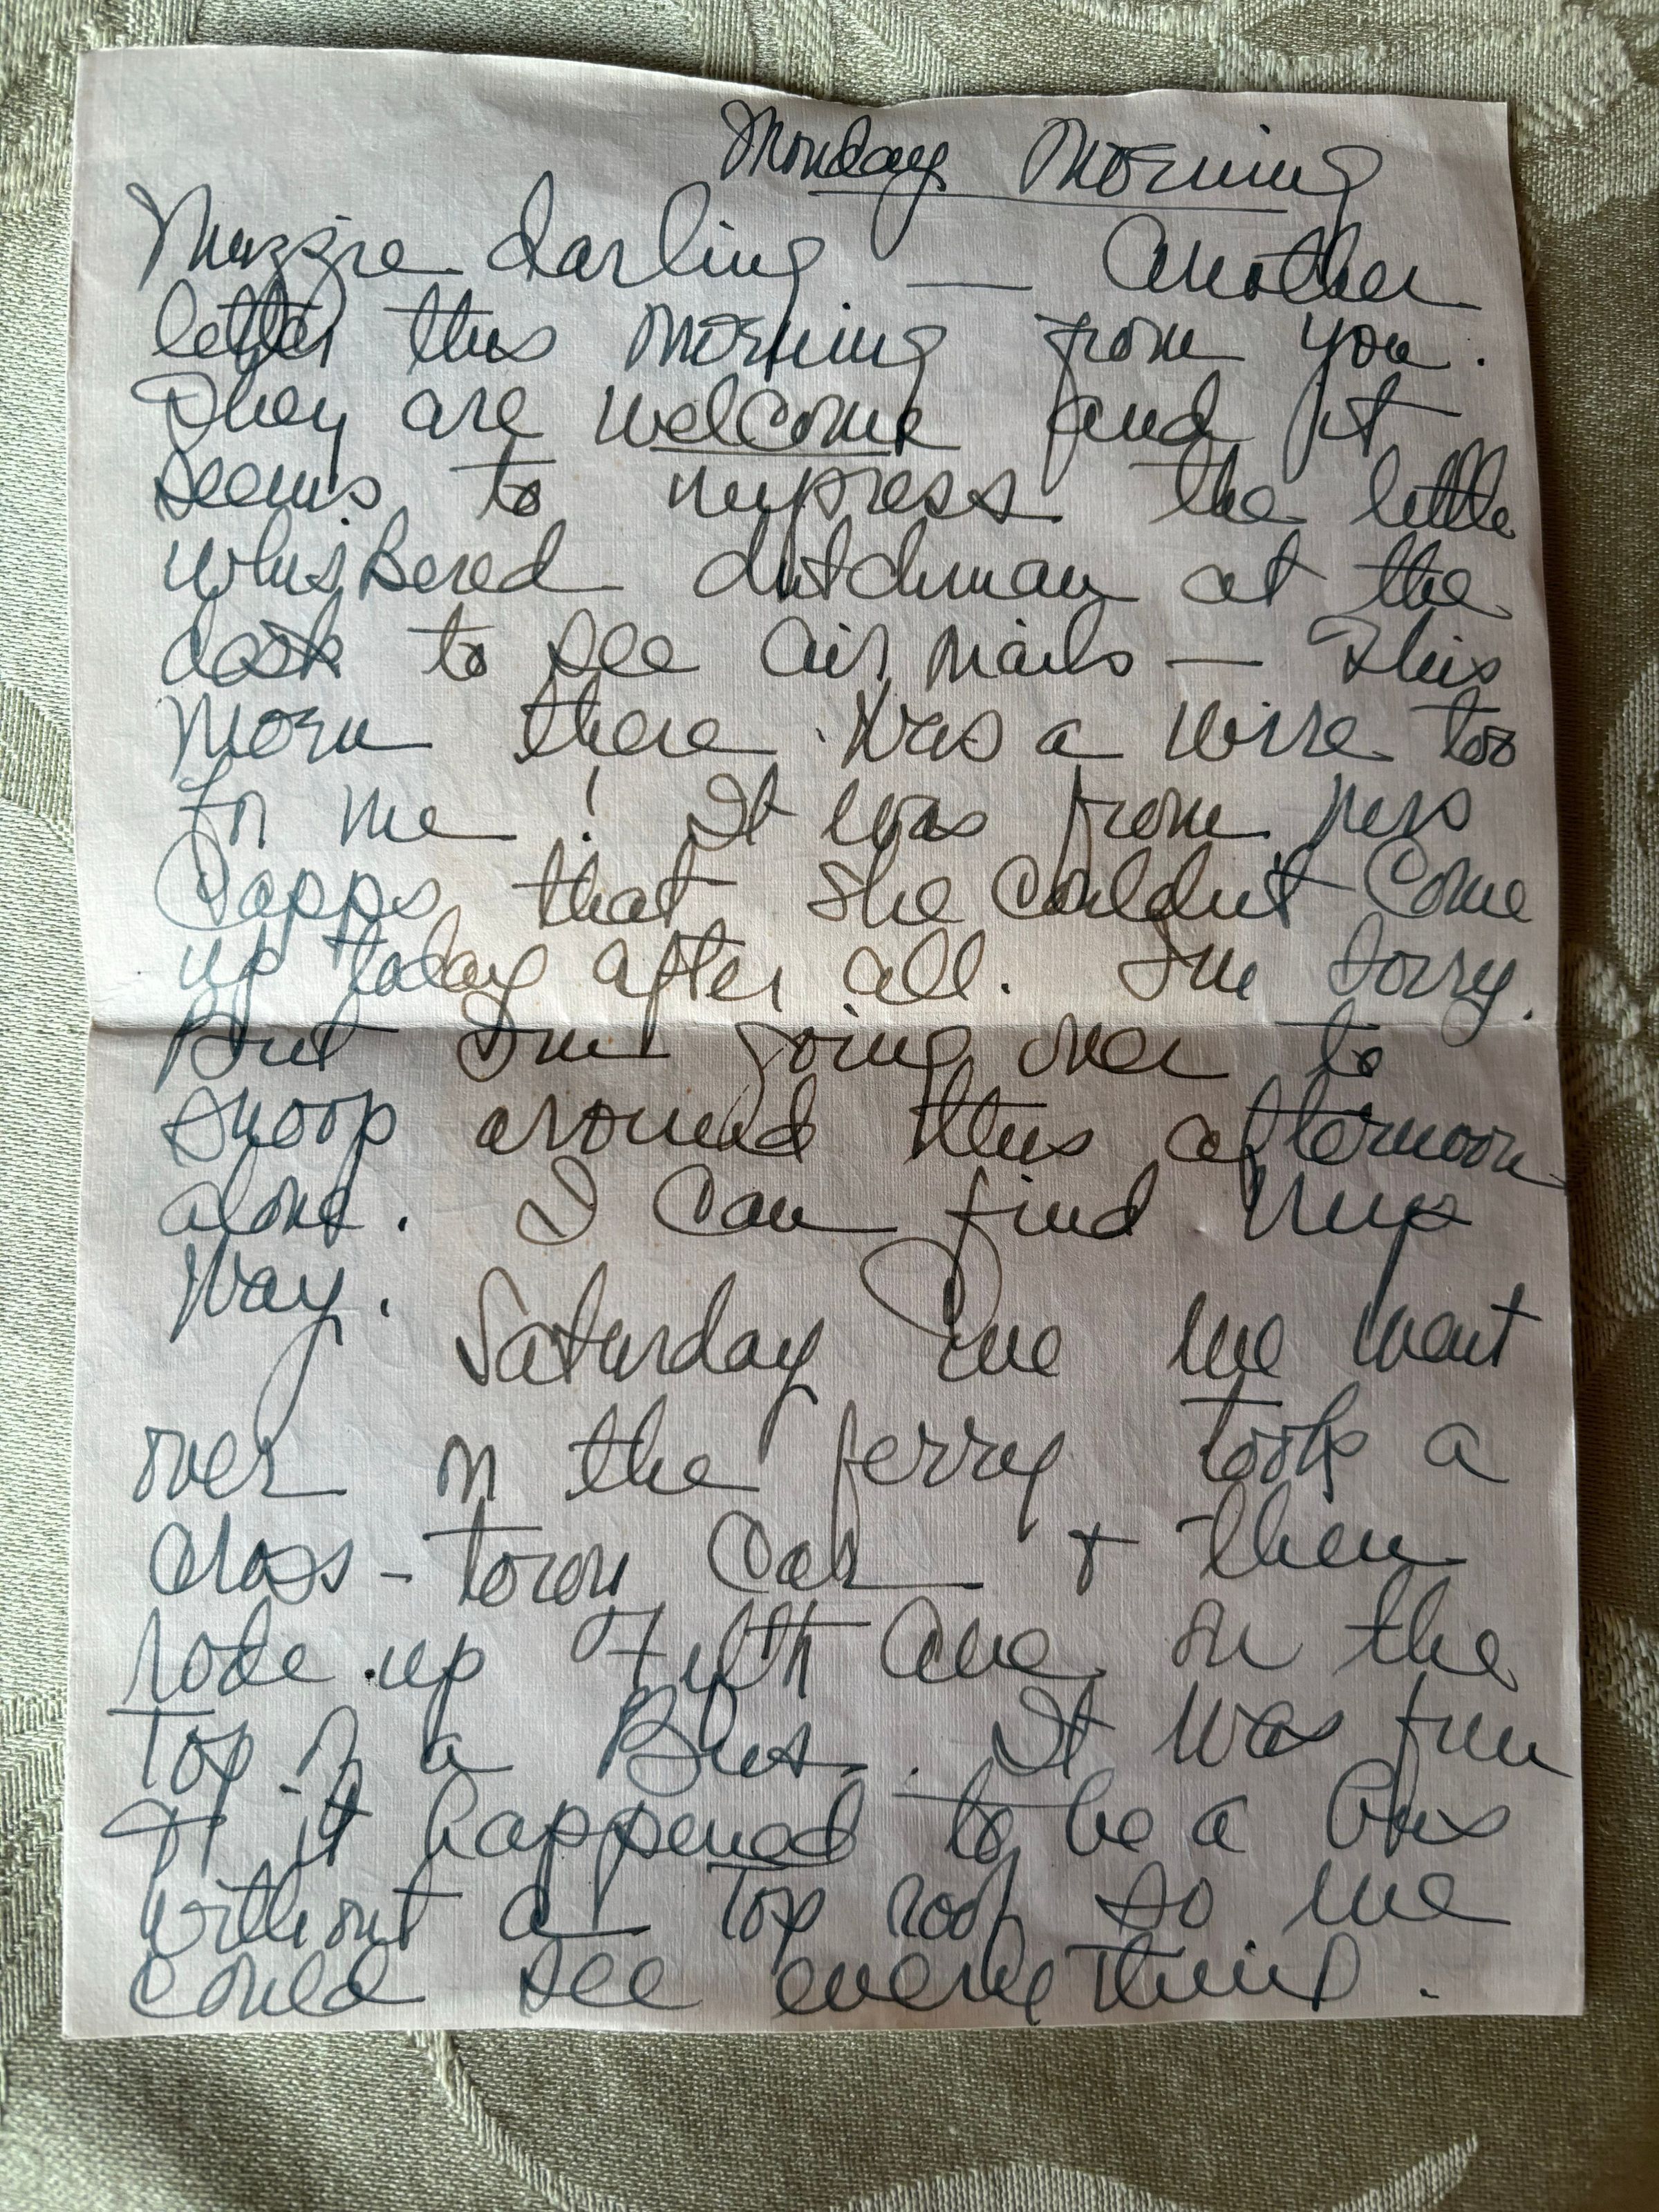 Monday Morning
Muzzie darling — Another
letter this morning from you.
They are welcome and it
seems to impress the little
whiskered dutchman at the
desk to see air mails — This
Morn there was a wire too
for me! It was from Mrs
Capps that she couldnt come
up today after all. Im sorry.
But Im going over to
snoop around this afternoon
alone. I can find my
way.
Saturday eve we went
over on the ferry took a
cross-town car + then
rode up Fifth Ave on the
top of a Bus. It was fun
+ it happened to be a bus
without a top roof so we
could see everything.